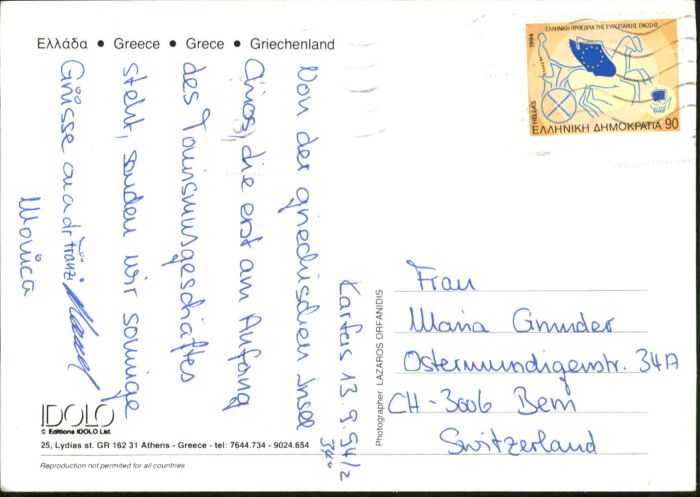 Ελλάδα • Greece • Grece • Griechenland
Karfas 13.9.94/2
34°
Von der griechischen Insel
Chios, die erst am Anfang
des Tourismusgeschäftes
steht, senden wir sonnige
Grüsse au a di Franzi
Monica
IDOLO
© Editions IDOLO Ltd.
25, Lydias st. GR 162 31 Athens - Greece - tel: 7644.734 - 9024.654
Reproduction not permited for all countries
Photographer: LAZAROS ORFANIDIS
1994
ΕΛΛΗΝΙΚΗ ΠΡΟΕΔΡΙΑ ΤΗΣ ΕΥΡΩΠΑΪΚΗΣ ΕΝΩΣΗΣ
HELLAS
ΕΛΛΗΝΙΚΗ ΔΗΜΟΚΡΑΤΙΑ 90
Frau
Maria Gmünder
Ostermundigenstr. 34A
CH-3006 Bern
Switzerland